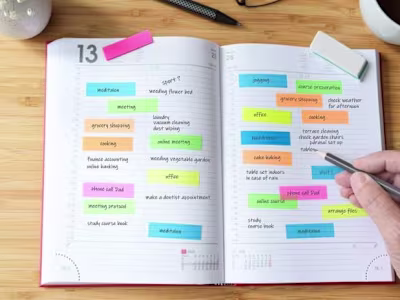 13
sport ?
meditation
weeding flower bed
meeting
grocery shopping
laundry
vacuum cleaning
dust wiping
cooking
online meeting
finance accounting
online banking
weeding vegetable garden
office
phone call Dad
make a dentist appointment
meeting protocol
study course book
meditation
jogging
course preparation
grocery shopping
check weather
for afternoon
office
cooking
terrace cleaning
check garden chairs
parasol set up
cake baking
table set indoors
in case of rain
phone call Dad
online course
arrange files
study
course book
meditation